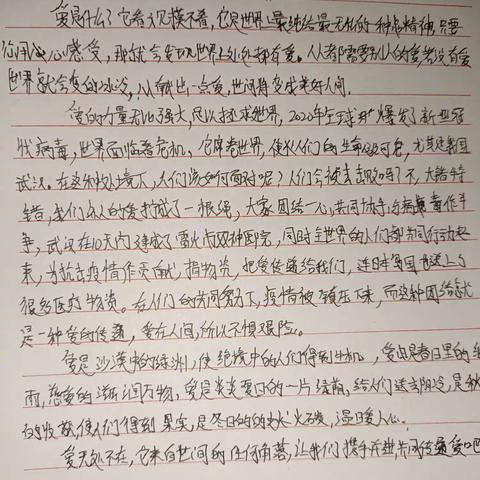 爱是什么?它看不见摸不着,它是世界上最纯洁最无私的一种精神,只要
你用心感受,那就会发现世界上处处都有爱。人人都需要别人的爱,若没有爱
世界就会变的冰冷,人人献出一点爱,世间将变成美好人间。
爱的力量无比强大,足以拯救世界,2020年全球爆发了新型冠
状病毒,世界面临着危机,它席卷世界,使人们的生命
武汉。在这种处境下,人们该如何面对呢?人们会被击败吗?不,大错特
错,我们众人的爱打成了一根绳,大家团结一心,共同协手与病毒作斗
争,武汉在10天内建成了雷火二神医院,同时全世界的人们都共同行动起
来,为抗击疫情作贡献,捐物资,把爱传递给我们,连日本等国也送上了
很多医疗物资。在人们的共同努力下,疫情被镇压下来,而这种团结就
是一种爱的传递,爱在人间,所以不惧艰险。
爱是沙漠中的绿洲,使绝境中的人们得到生机,爱也是春日里的细
雨,慈爱的滋润万物,爱是炎炎夏日的一片绿荫,给人们送去阴凉,是秋
的收获,使人们得到果实,是冬日的火,温暖人心。
爱无处不在,它来自世间的任何角落,让我们携手并进,共同传递爱吧